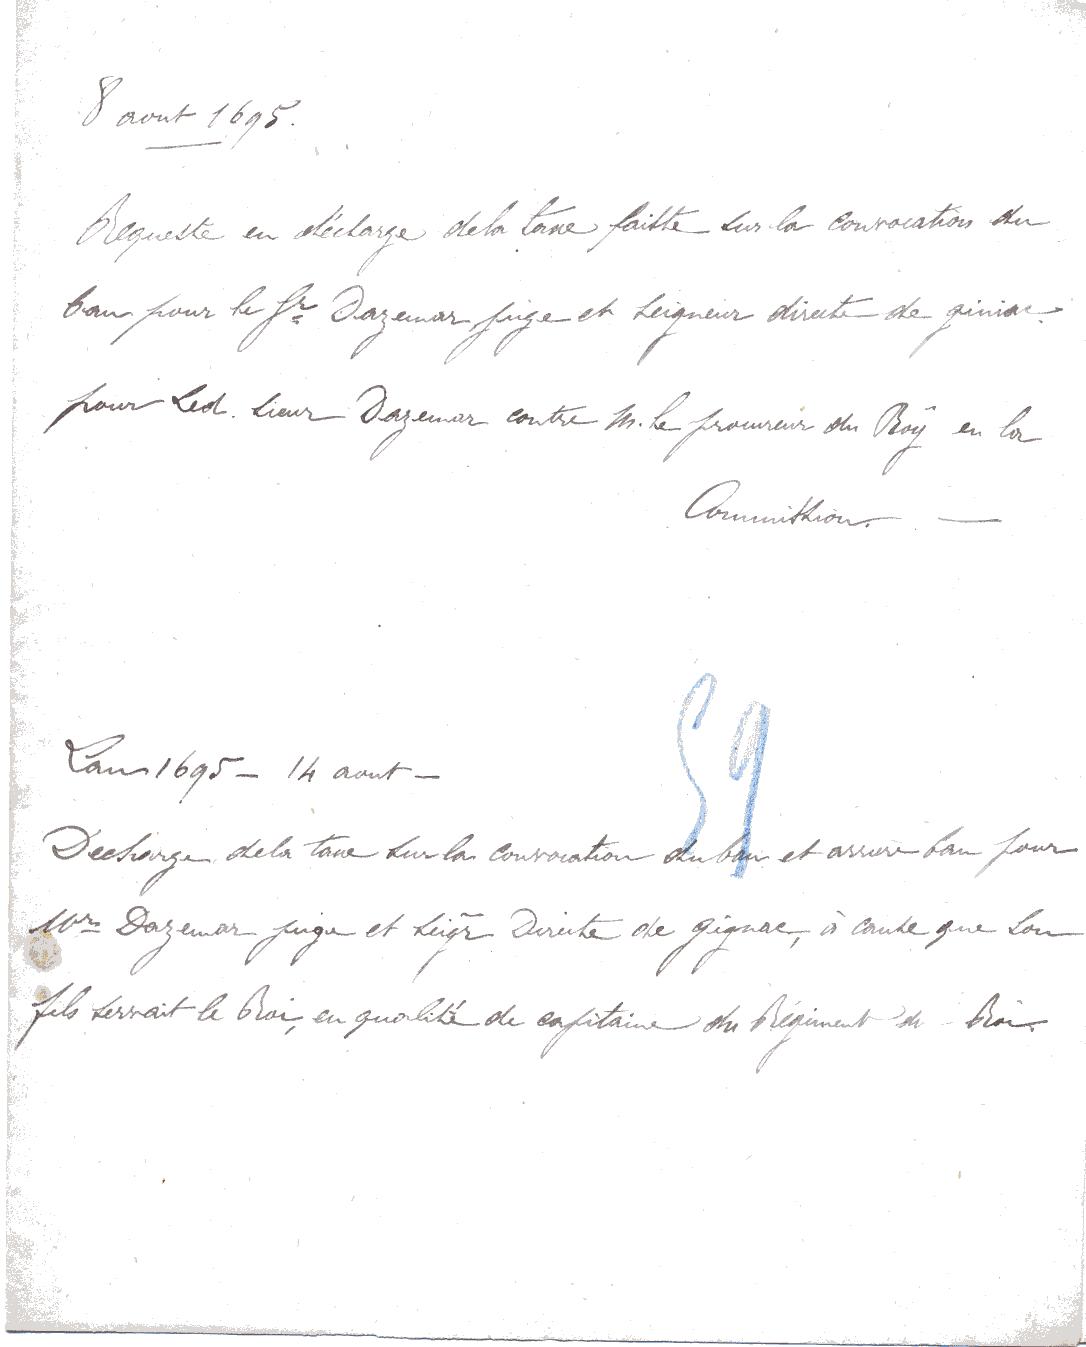 8 aout 1695.
Requeste en décharge dela taxe faitte sur la convocation du
ban pour le Sr Dazemar juge et seigneur directe de giniac.
pour Led. sieur Dazemar contre M. le procureur du Roÿ en la
Commission. —
59
Lan 1695 — 14 aout —
Decharge dela taxe sur la convocation du ban et arriere ban pour
Mre Dazemar juge et seigr Directe de gignac, à cause que son
fils servait le Roi, en qualité de capitaine du Régiment du Roi.